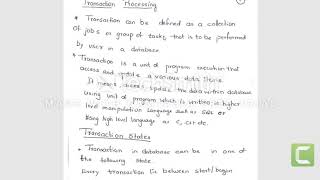 Transaction Processing
* Transaction can be defined as a collection
of jobs or group of tasks that is to be performed
by user in a database.
* Transaction is a unit of program execution that
access and update a various data items.
It means access, update the data within database
using unit of program which is written is higher
level manipulation language such as SQL or
Using high level language as C, C++ etc.
Transaction States
* Transaction in database can be in one of
the following state
Every transaction is between start/begin